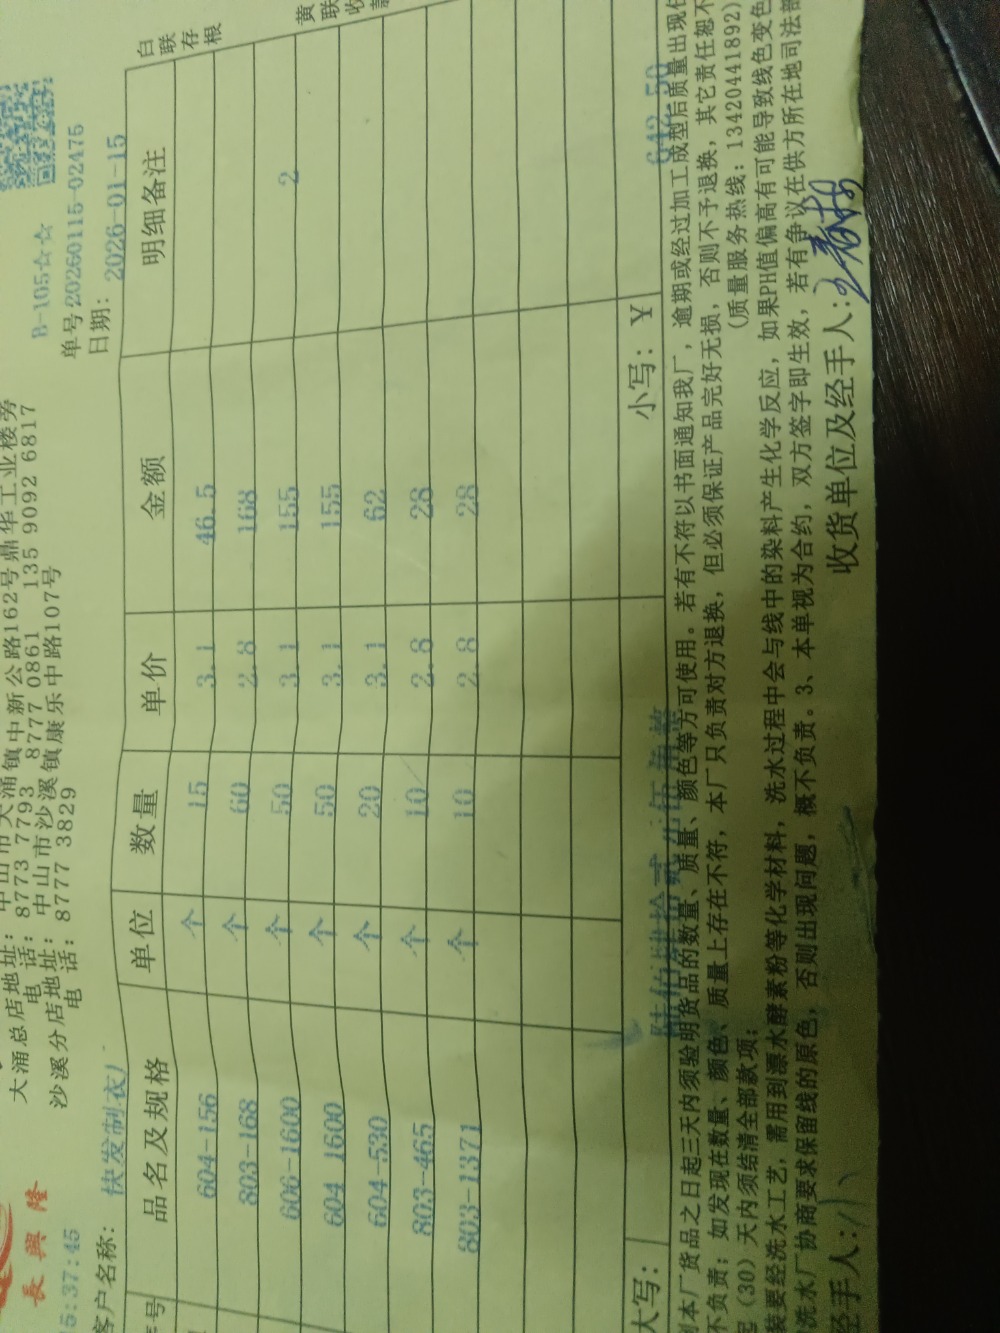 長興隆
大涌总店地址: 中山市大涌镇中新公路162号鼎华工业楼旁
电 话: 8773 7793 8777 0861 135 9092 6817
沙溪分店地址: 中山市沙溪镇康乐中路107号
电 话: 8777 3829
B-105☆☆
单号20260115-02475
5:37:45
客户名称: 快发制衣)
日期: 2026-01-15
号 品名及规格 单位 数量 单价 金额 明细备注
604-156 个 15 3.1 46.5
803-168 个 60 2.8 168
606-1600 个 50 3.1 155 2
604 1600 个 50 3.1 155
604-530 个 20 3.1 62
803-465 个 10 2.8 28
803-1371 个 10 2.8 28
大写: 陆佰肆拾贰元伍角整 小写: ¥ 642.50
本厂货品之日起三天内须验明货品的数量、质量、颜色等方可使用。若有不符以书面通知我厂, 逾期或经过加工成型后质量出现
不负责; 如发现在数量、颜色、质量上存在不符, 本厂只负责对方退换, 但必须保证产品完好无损, 否则不予退换, 其它责任恕不
(30) 天内须结清全部款项; (质量服务热线: 13420441892)
装要经洗水工艺, 需用到漂水酵素粉等化学材料, 洗水过程中会与线中的染料产生化学反应, 如果PH值偏高有可能导致线色变色
洗水厂协商要求保留线的原色, 否则出现问题, 概不负责。3、本单视为合约, 双方签字即生效, 若有争议在供方所在地司法部
经手人: 收货单位及经手人:
白联存根
黄联收